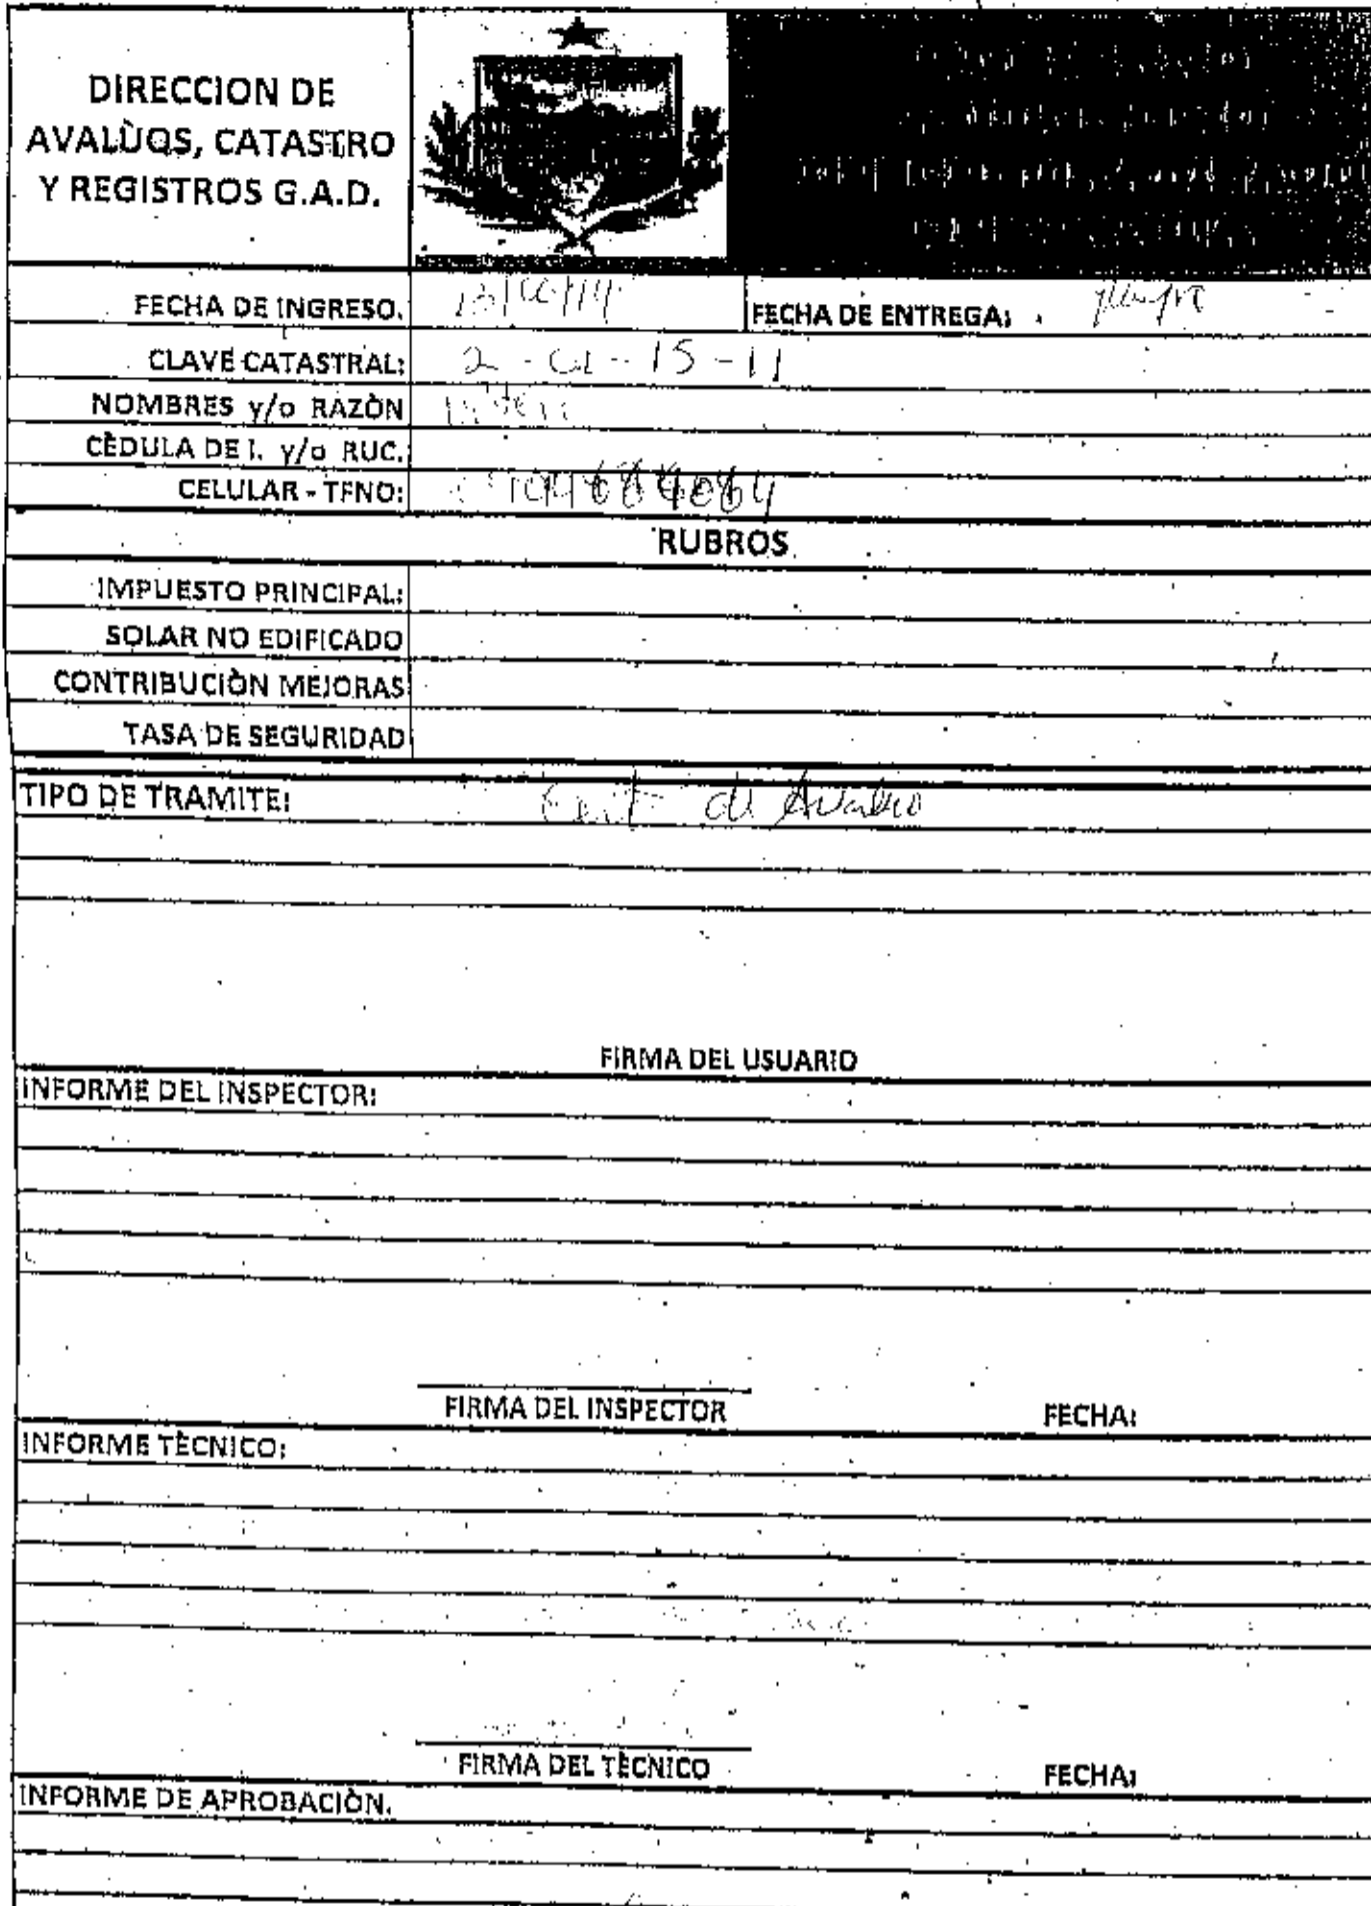 DIRECCION DE
AVALÙOS, CATASTRO
Y REGISTROS G.A.D.
FECHA DE INGRESO.
FECHA DE ENTREGA:
CLAVE CATASTRAL: 2 - 01 - 15 - 11
NOMBRES y/o RAZÒN
CÈDULA DE I. y/o RUC.
CELULAR - TFNO:
RUBROS
IMPUESTO PRINCIPAL:
SOLAR NO EDIFICADO
CONTRIBUCIÒN MEJORAS
TASA DE SEGURIDAD
TIPO DE TRAMITE: Cert de Avaluo
FIRMA DEL USUARIO
INFORME DEL INSPECTOR:
FIRMA DEL INSPECTOR FECHA:
INFORME TÈCNICO:
FIRMA DEL TÈCNICO FECHA:
INFORME DE APROBACIÒN.